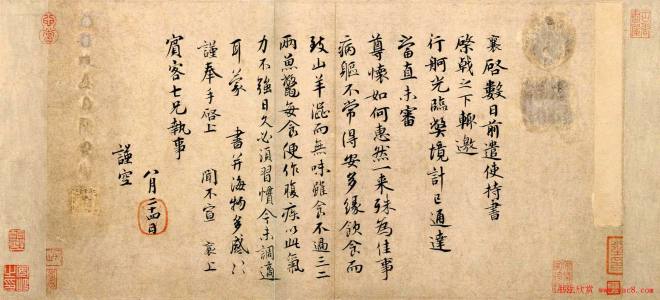 襄啓數日前遣使持書
棨戟之下輒邀
行舸光臨弊境計已通達
當直未審
尊懷如何惠然一來殊為佳事
病軀不常得安多緣飲食而
致山羊澀而無味雖食不過三二
兩魚鼈每食便作腹疾以此氣
力不強日久必須習慣今未調適
耳蒙 書并海物多感〻
謹奉手啓上 聞不宣 襄上
賓客七兄執事
八月二十四日
謹空